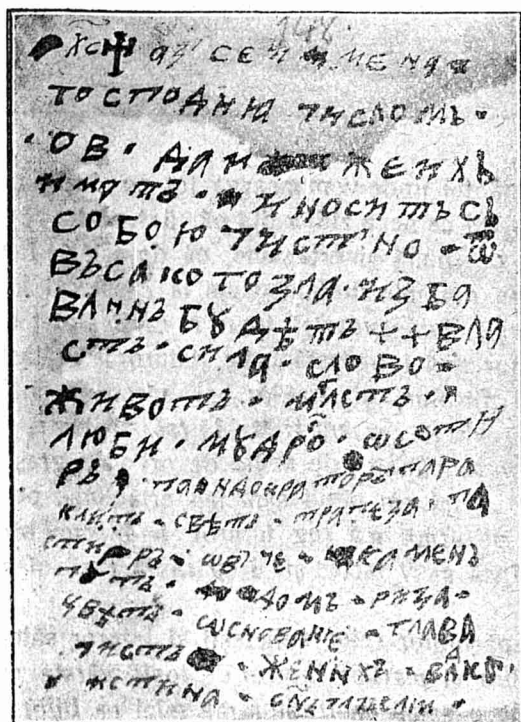 а҃ꙁ сеи имена
господню числомъ·
·ов· да ꙗже ихь
имать· и носить сь
собою чист'но· ѿ
въсакого зла· изба
влннъ бꙋдѣть ++ вла
сть· сила· слово·
животь· млсть· и
люби· мꙋдро· ѡсоти
ръ· пандократоръ пара
клить· свѣть· трапеза· па
стирръ· ѡвче· камень
пꙋть· домъ· риза·
цвѣть· ѡснование· глава
чисть· женихъ·
истина·